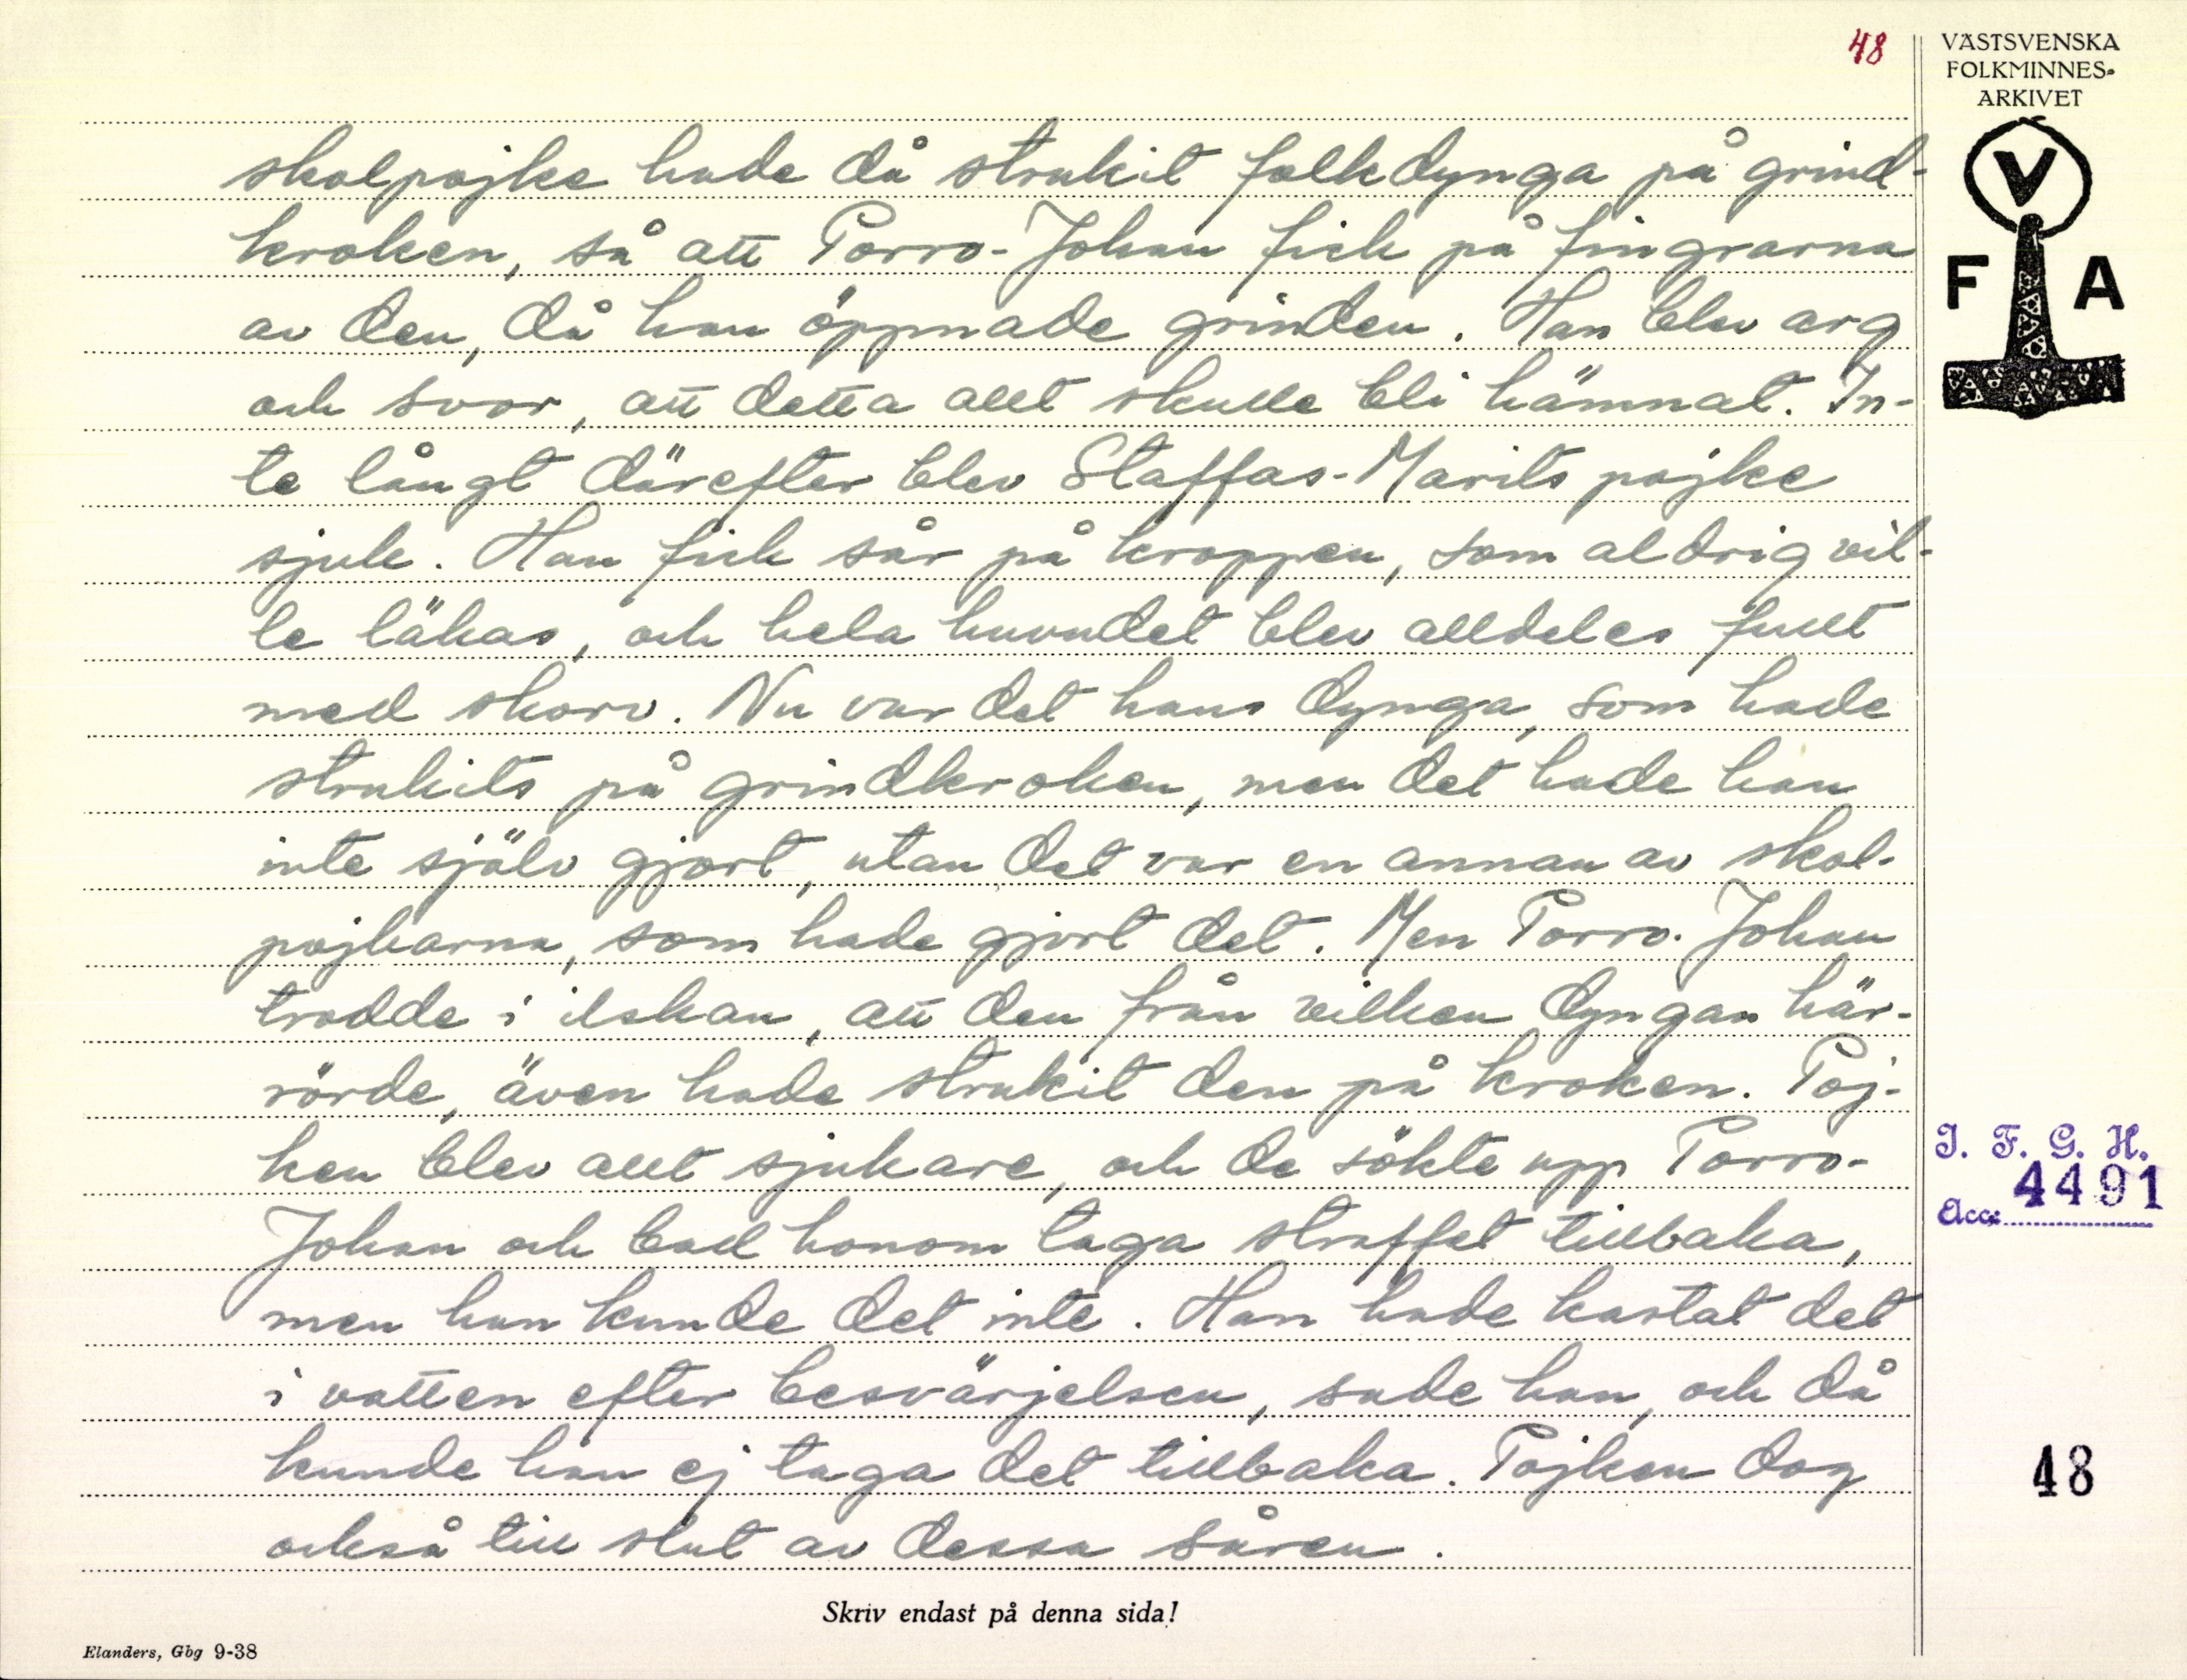 48
VÄSTSVENSKA
FOLKMINNES-
ARKIVET
V
F A
skolpojke hade då strukit folkdynga på grind-
kroken, så att Porro-Johan fick på fingrarna
av den, då han öppnade grinden. Han blev arg
och svor, att detta allt skulle bli hämnat. In-
te långt därefter blev Staffas-Marits pojke
sjuk. Han fick sår på kroppen, som aldrig vil-
le läkas, och hela huvudet blev alldeles fullt
med skorv. Nu var det hans dynga, som hade
strukits på grindkroken, men det hade han
inte själv gjort, utan det var en annan av skol-
pojkarna, som hade gjort det. Men Porro-Johan
trodde i ilskan, att den från vilken dyngan här-
rörde, även hade strukit den på kroken. Poj-
ken blev allt sjukare, och de sökte upp Porro-
Johan och bad honom taga straffet tillbaka,
men han kunde det inte. Han hade kastat det
i vatten efter besvärjelsen, sade han, och då
kunde han ej taga det tillbaka. Pojken dog
också till slut av dessa såren.
I. F. G. H.
Acc: 4491
48
Skriv endast på denna sida!
Elanders, Gbg 9-38